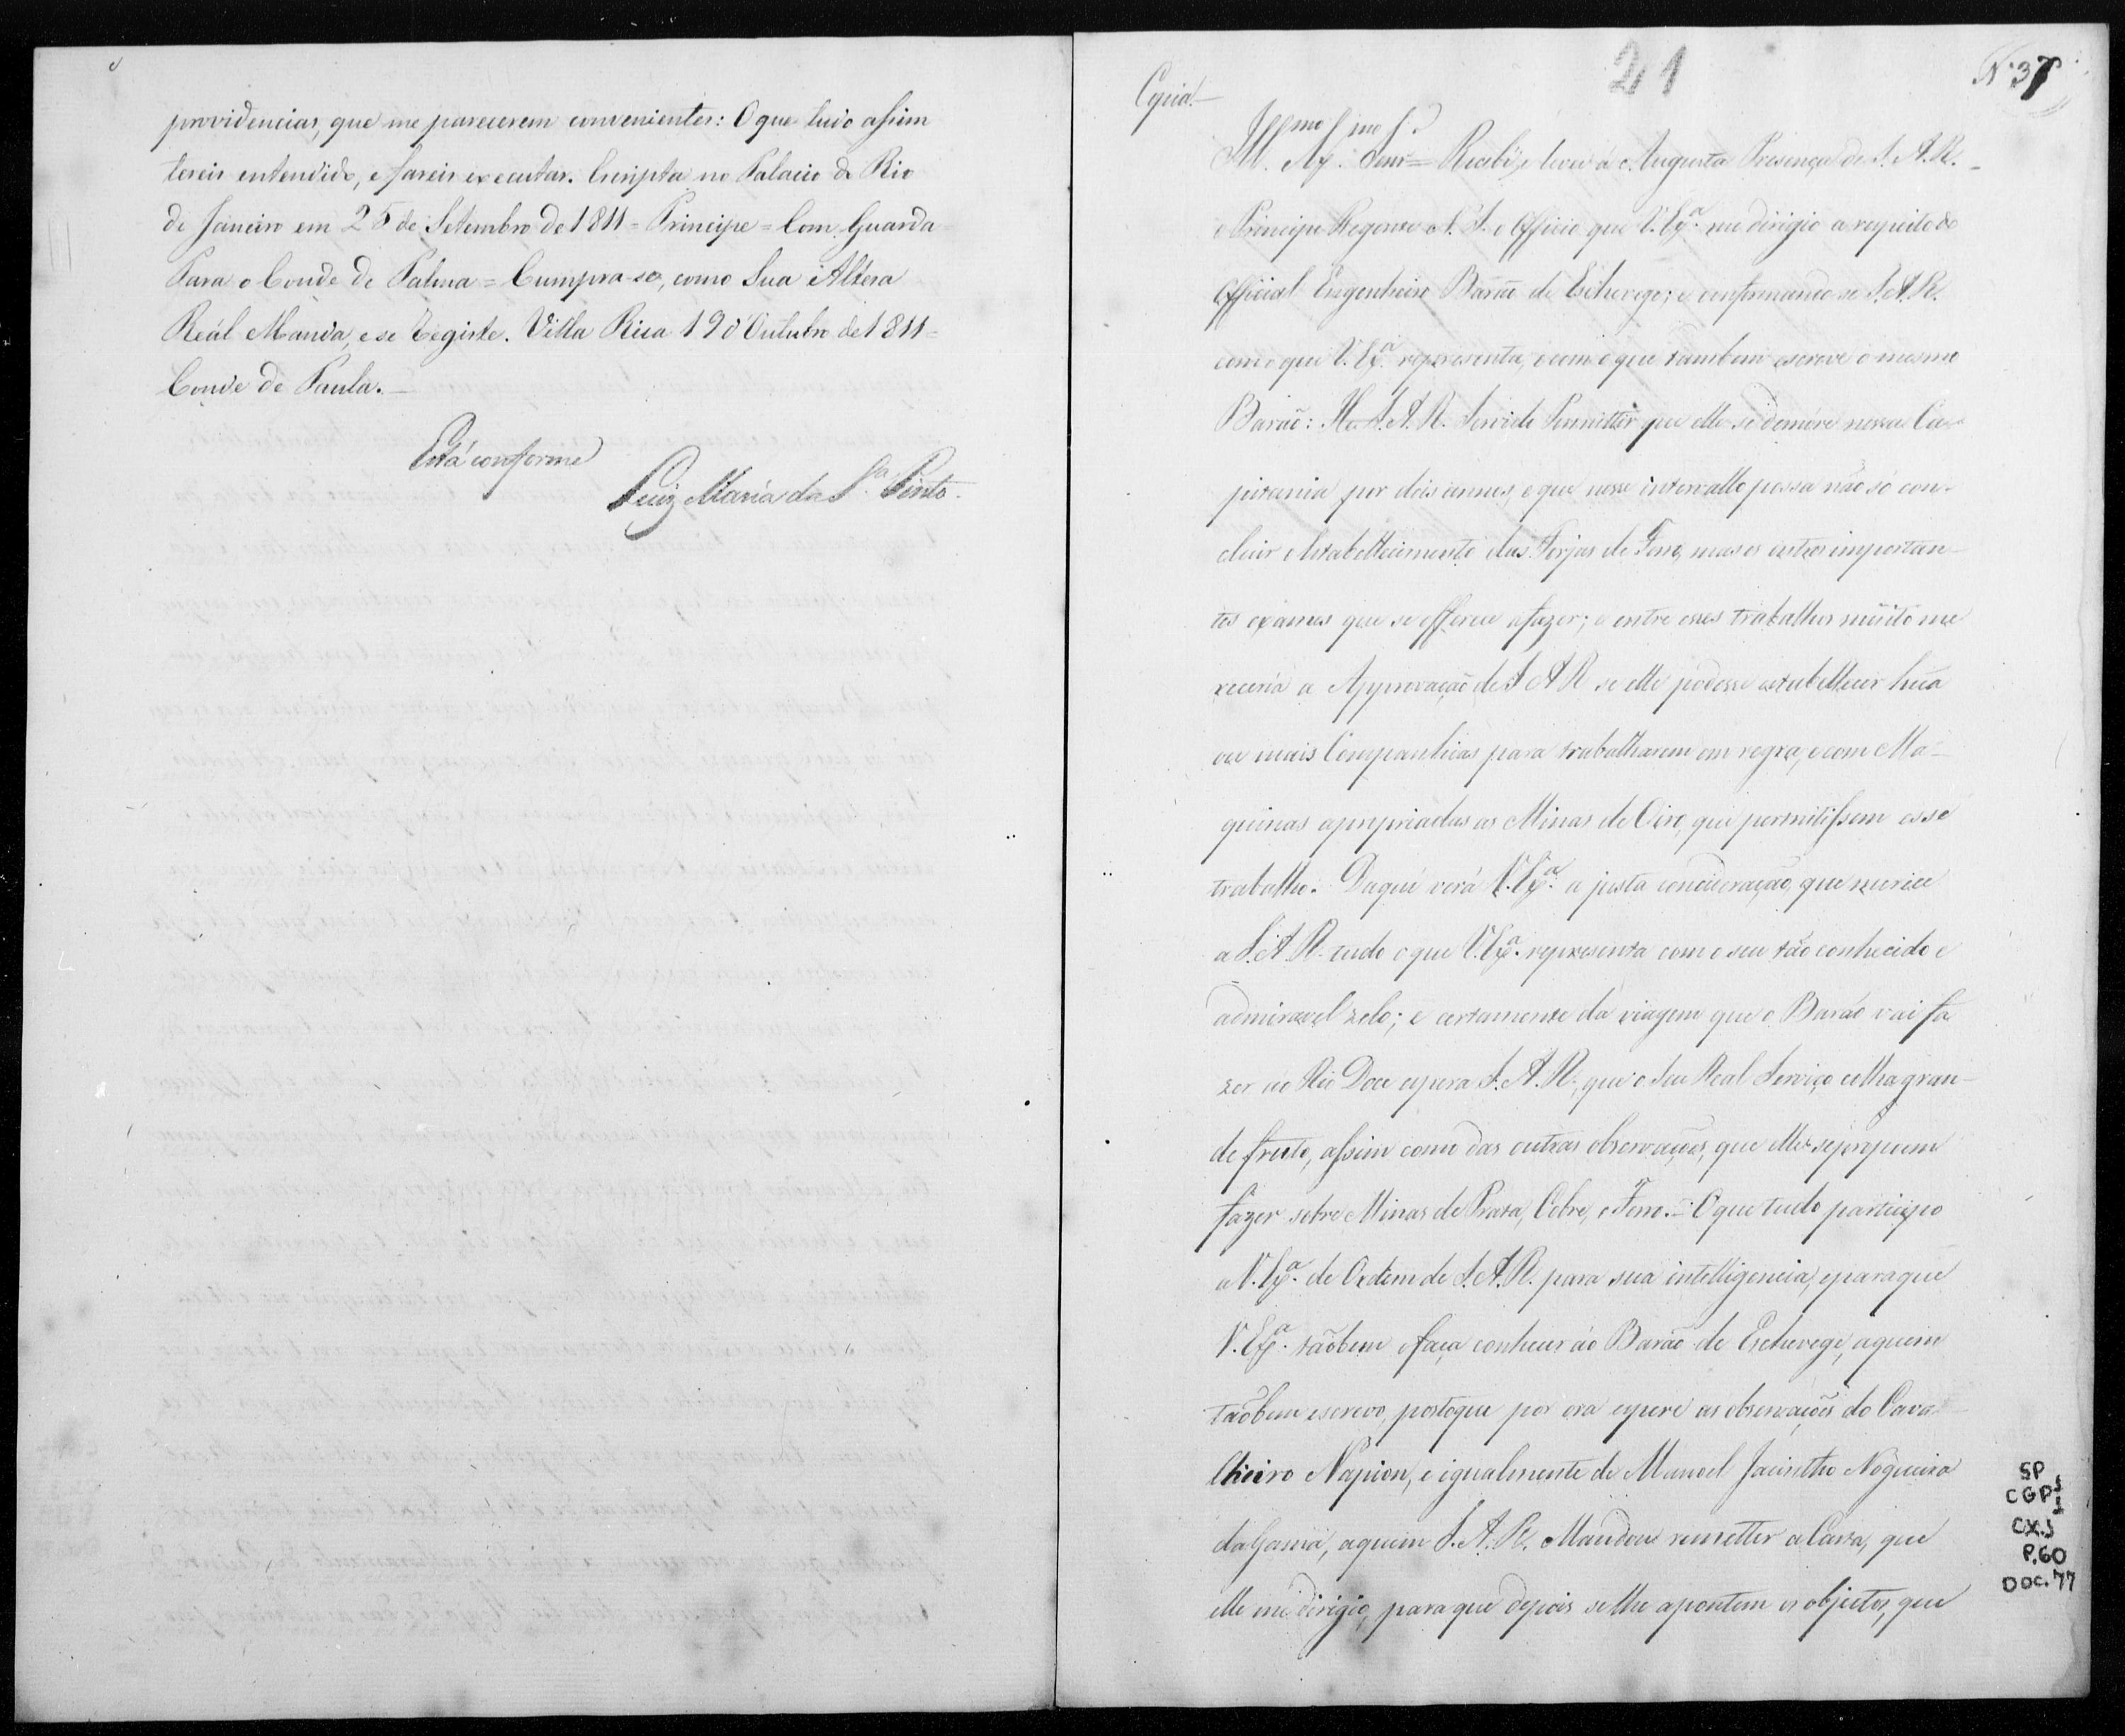 providencias, que me parecerem convenientes: O que tudo assim
tereis entendido, e fareis executar. Escripta no Palacio do Rio
de Janeiro em 25 de Setembro de 1811 = Principe = Com Guarda
Para o Conde de Palma = Cumpra-se, como Sua Alteza
Reál Manda, e se Registe. Villa Rica 19 d'Outubro de 1811 =
Conde de Paula. —
Está conforme
Luiz Maria da S.ª Pinto.
21
N. 37
Copia —
Ill.mo Ex.mo Senr = Recebi, e levei á Augusta Presença de S. A. R.
o Principe Regente N. S. o Officio que V. Ex.ª me dirigio a respeito do
Official Engenheiro Barão de Eschevege; e conformando se S. A. R.
com o que V. Ex.ª representa, e com o que tambem escreve o mesmo
Barão: He S. A. R. Servido Permittir que elle se demóre nessa Ca-
pitania por dois annos, e que nesse intervallo possa não só con-
cluir o Estabellecimento das Forjas de Ferro, mas os outros importan-
tes exames que se offerece a fazer; e entre esses trabalhos muito me
receria a Approvação de S A R se elle podesse estabellecer hũa
ou mais Companhias para trabalharem em regra, e com Ma-
quinas apropriadas as Minas de Oiro, que permitissem esse
trabalho. Daqui verá V. Ex.ª a justa concideração, que merece
a S. A. R. tudo o que V. Ex.ª representa com o seu tão conhecido e
admiravel zelo; e certamente da viagem que o Barão vai fa
zer ao Rio Doce espera S. A. R., que o Seu Real Serviço colha gran-
de fruto, assim como das outras observações, que elle se propoem
fazer sobre Minas de Prata, Cobre, e Ferro. = O que tudo participo
a V. Ex.ª de Ordem de S. A. R. para sua intelligencia, e para que
V. Ex.ª tãobem o faça conhecer ao Barão de Eschevege, a quem
tãobem escrevo, postoque por ora espere as observações do Cava
lheiro Napion, e igualmente de Manoel Jacintho Nogueira
da Gama, a quem S. A. R. Mandou remetter a Carta, que
elle me dirigio, para que depois se lhe apontem os objectos, que
SP
CGP 1
CX. 5
P. 60
DOC. 77